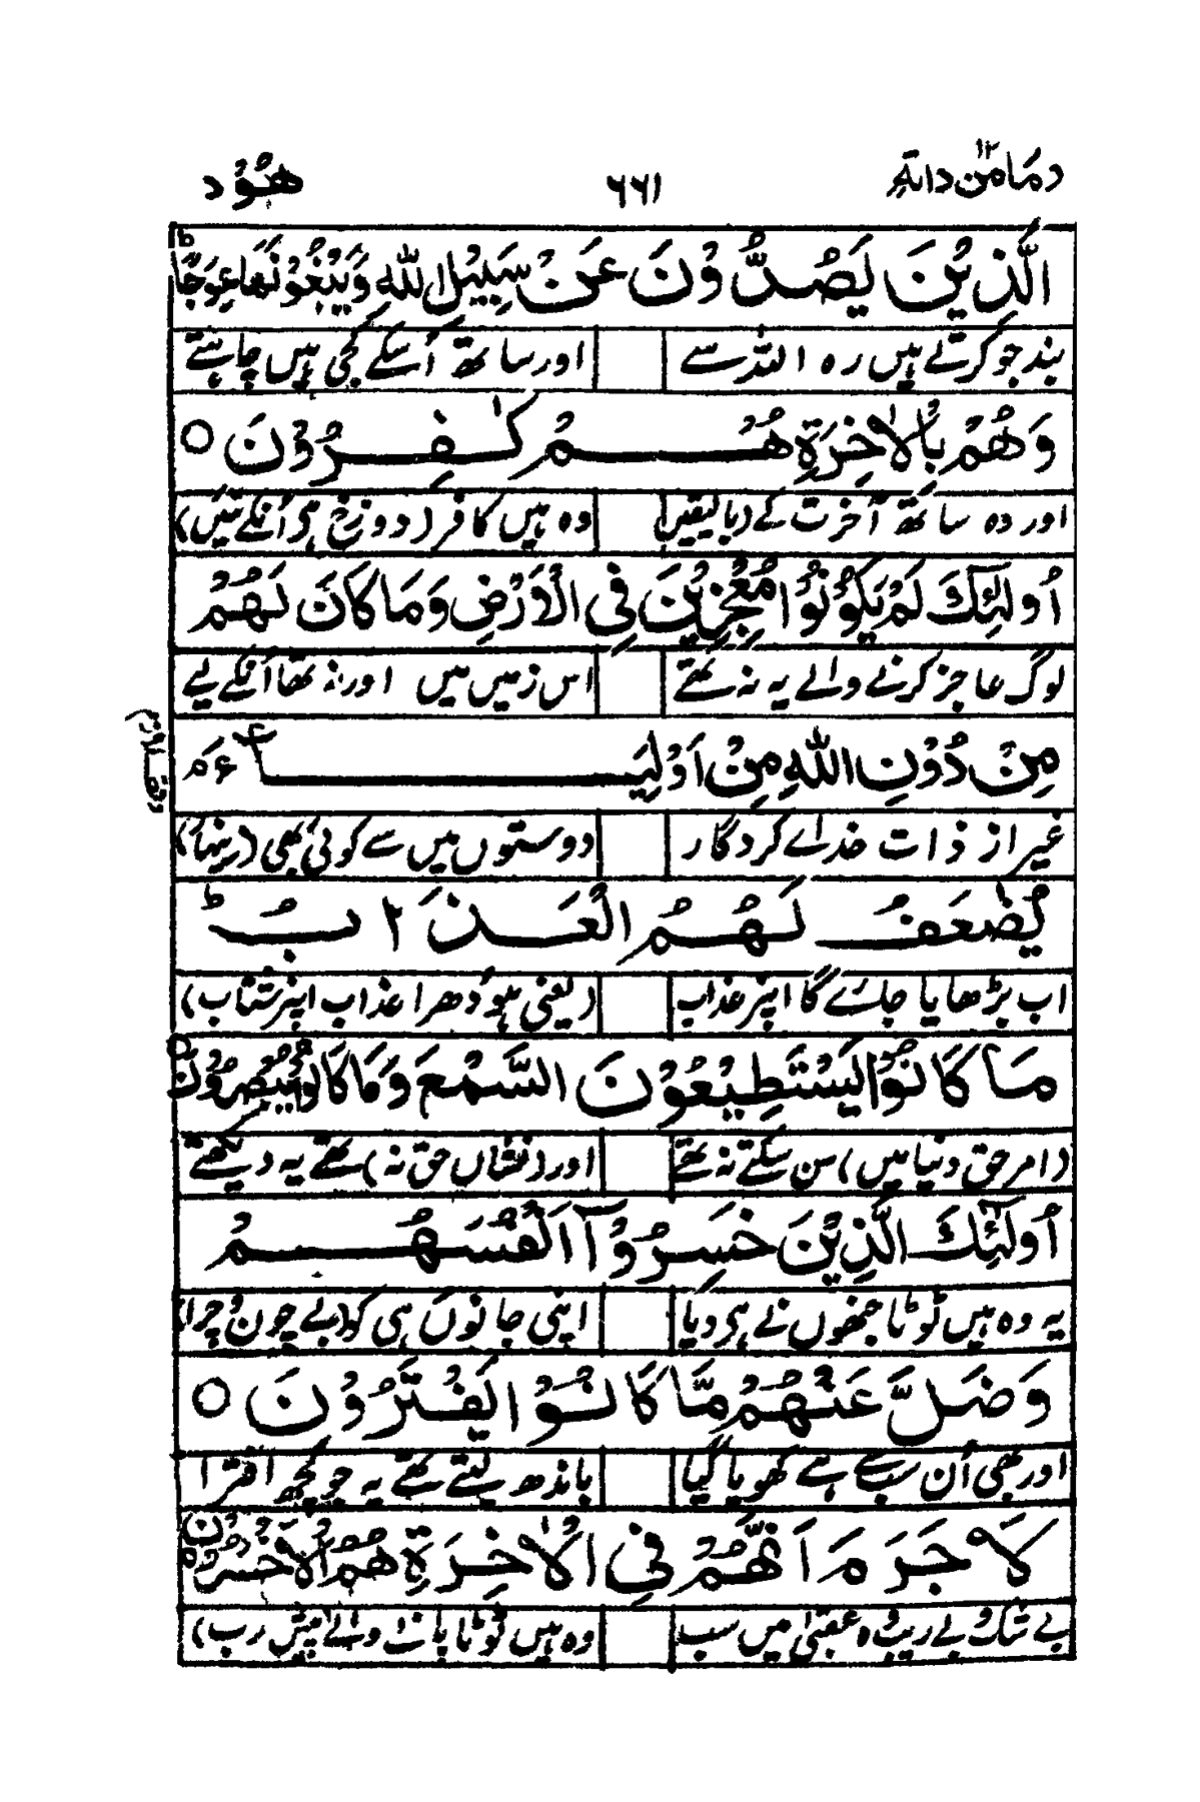 ومامن دابة ١٢ ٦٦١ هود
الَّذِيْنَ يَصُدُّوْنَ عَنْ سَبِيْلِ اللّٰهِ وَيَبْغُوْنَهَا عِوَجًا ط
بند جو کرتے ہیں رہ اللہ سے اور ساتھ اُسکے کجی ہیں چاہتے
وَهُمْ بِالْاٰخِرَةِ هُمْ كٰفِرُوْنَ ○
اور وہ ساتھ آخرت کے (بالیقیں) وہ ہیں کافر (دوزخ ہی اُنکے تئیں)
اُولٰٓئِكَ لَمْ يَكُوْنُوْا مُعْجِزِيْنَ فِي الْاَرْضِ وَمَا كَانَ لَهُمْ
لوگ عاجز کرنے والے یہ نہ تھے اس زمیں میں اور نہ تھا اُنکے لیے
مِنْ دُوْنِ اللّٰهِ مِنْ اَوْلِيَآءَ م
وقف لازم
غیر از ذات خدائے کردگار دوستوں میں سے کوئی بھی (زینہار)
يُضٰعَفُ لَهُمُ الْعَذَابُ ط
اب بڑھایا جائے گا اپنر عذاب (یعنی ہو دُھرا عذاب اپنر شتاب)
مَا كَانُوْا يَسْتَطِيْعُوْنَ السَّمْعَ وَمَا كَانُوْا يُبْصِرُوْنَ ○
(امر حق دنیا میں) سن سکتے نہ تھے اور (نشاں حق نہ) تھے یہ دیکھتے
اُولٰٓئِكَ الَّذِيْنَ خَسِرُوْٓا اَنْفُسَهُمْ
یہ وہ ہیں ٹوٹا جنھوں نے ہی دیا اپنی جانوں ہی کو (بے چون و چرا)
وَضَلَّ عَنْهُمْ مَّا كَانُوْا يَفْتَرُوْنَ ○
اور بھی اُن سب سے ہے کھویا گیا باندھ لیتے تھے یہ جو کچھ افترا
لَا جَرَمَ اَنَّهُمْ فِي الْاٰخِرَةِ هُمُ الْاَخْسَرُوْنَ ○
بے شک و بے ریب وہ عقبیٰ میں سب وہ ہیں ٹوٹا پانے والے